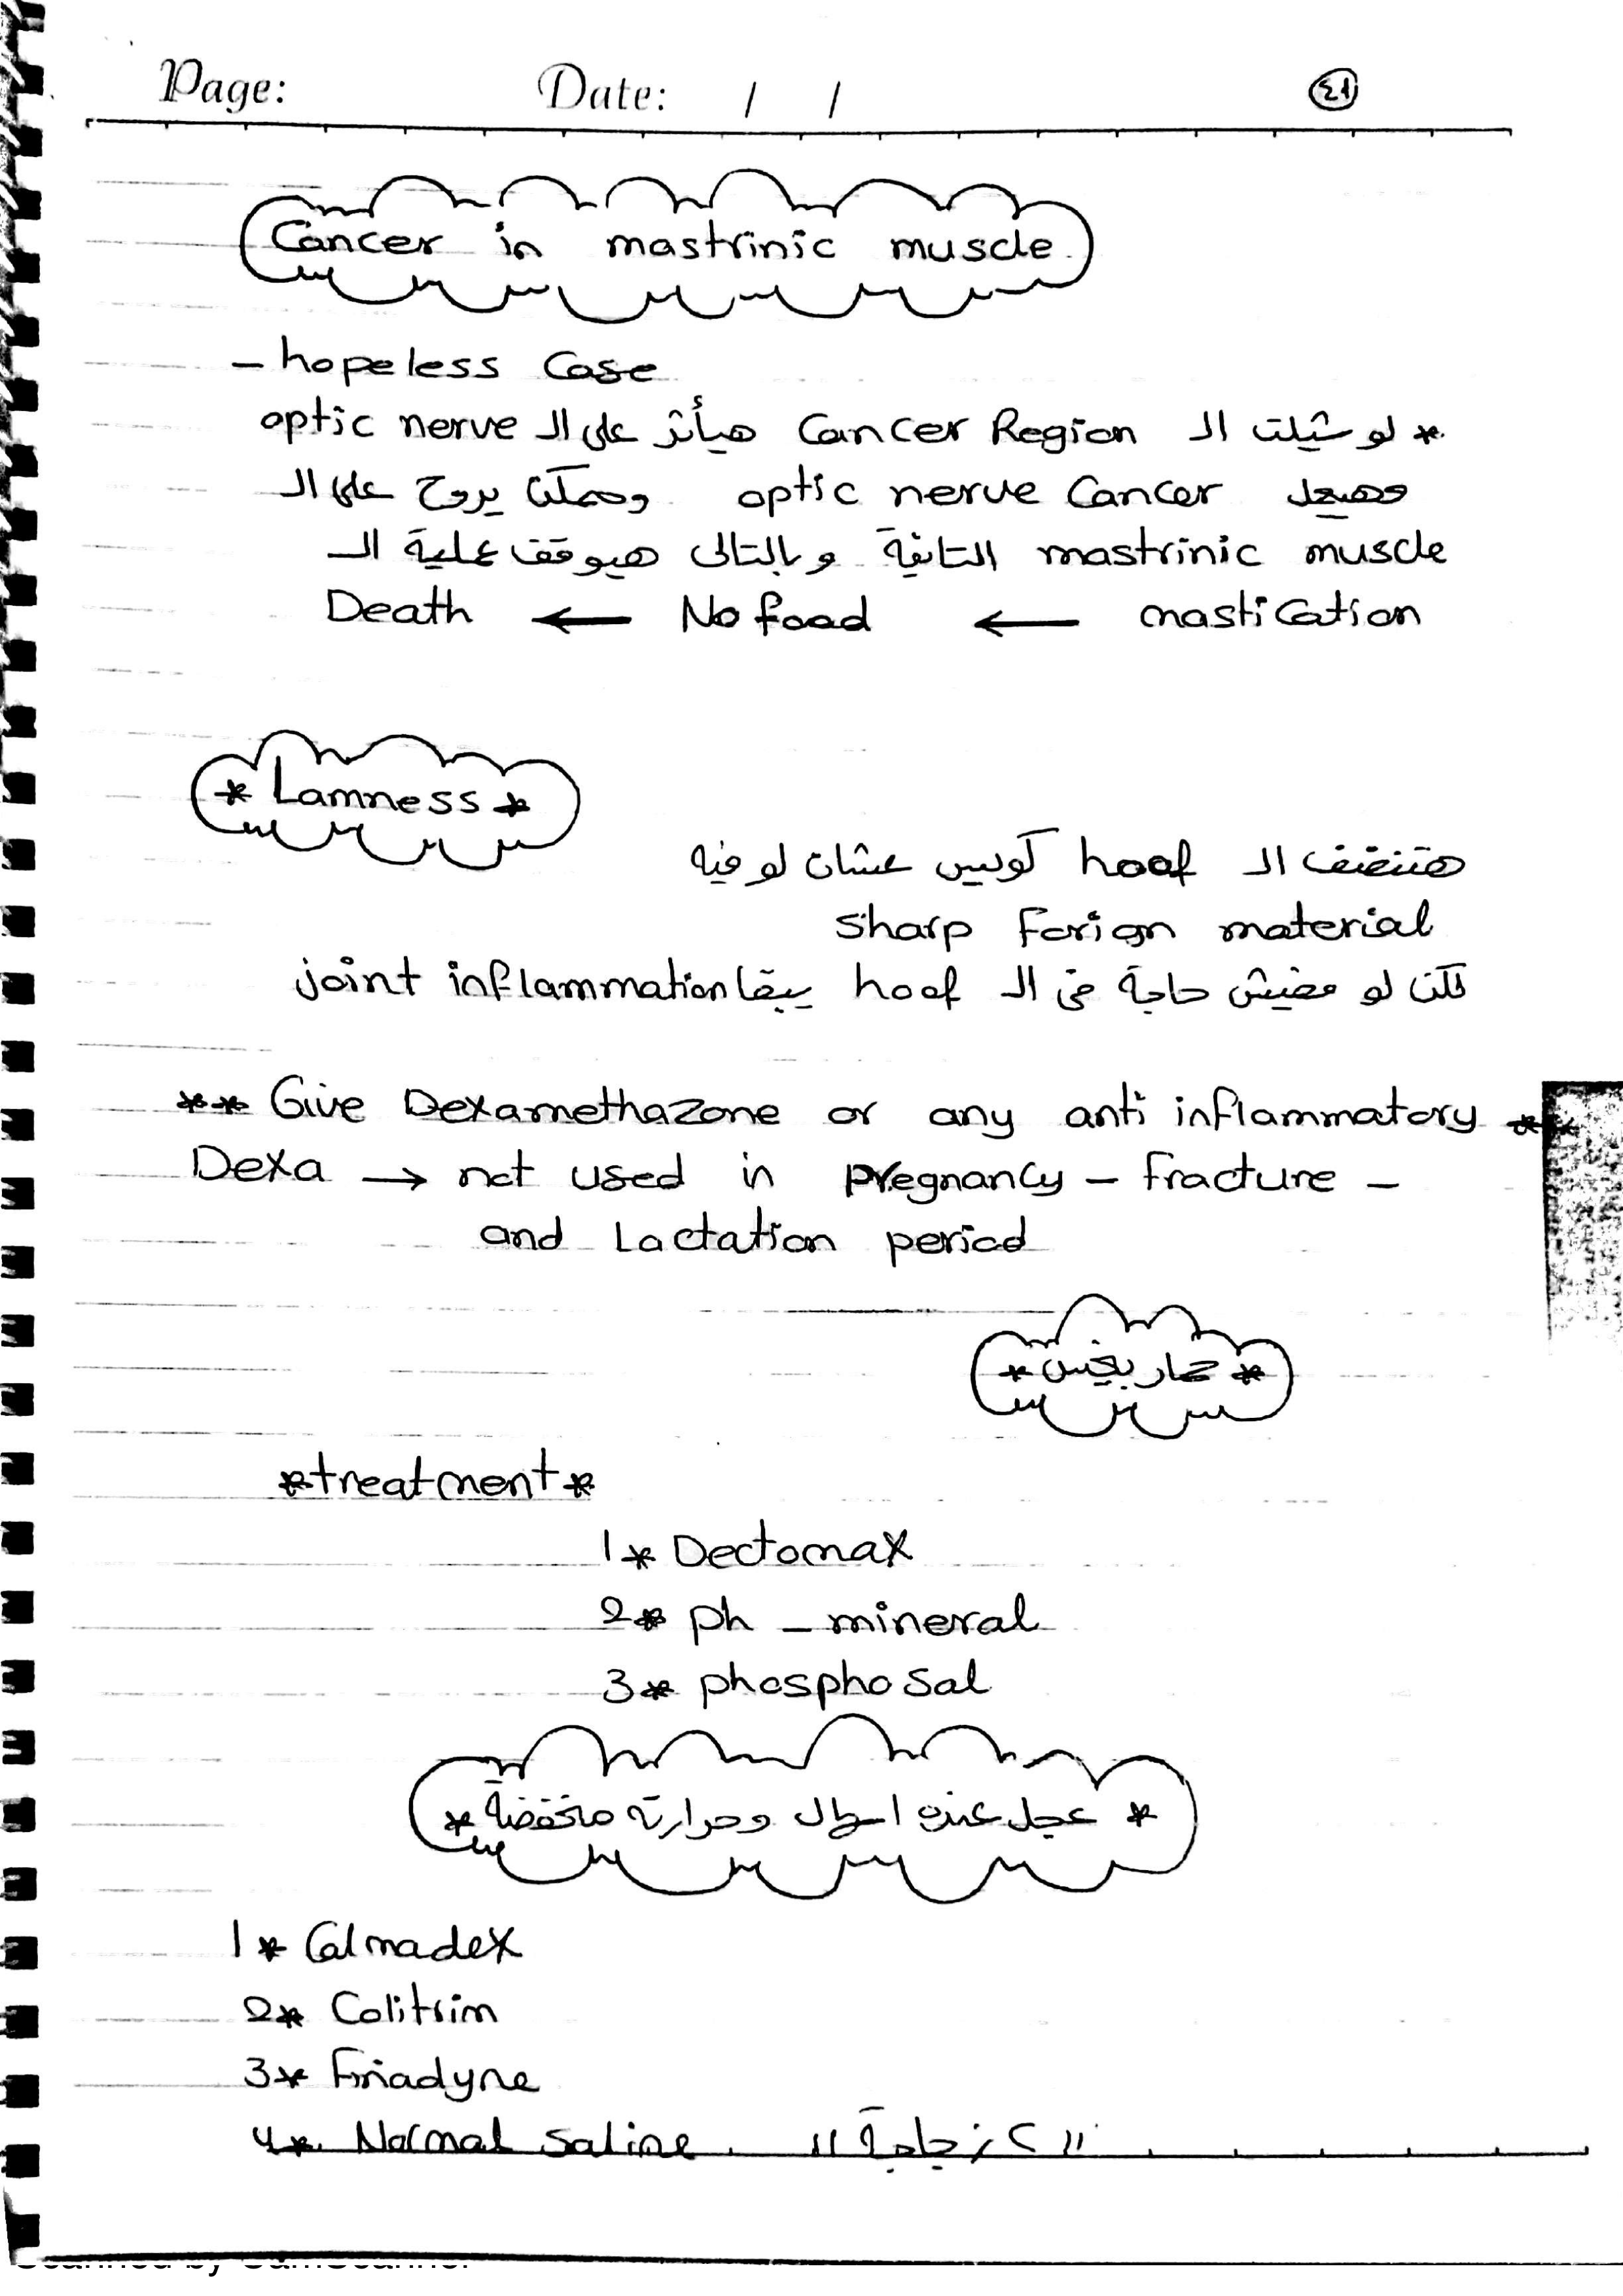 Page: Date: / /
٤١
Cancer in mastrinic muscle
- hopeless Case
* لو شيلت الـ Cancer Region هيأثر على الـ optic nerve
وهيعمل optic nerve Cancer وممكن يروح على الـ
mastrinic muscle التانية وبالتالى هيوقف عملية الـ
mastication ← No food ← Death
* Lamness *
هتنضف الـ hoof كويس عشان لو فيه
sharp forign material
لكن لو مفيش حاجة فى الـ hoof يبقا joint inflammation
** Give Dexamethazone or any anti inflammatory **
Dexa → not used in pregnancy - fracture -
and Lactation period
* حمار بيخس *
*treatment*
1* Dectomax
2* ph - mineral
3* phosphosal
* عجل عنده اسهال وحرارته منخفضة *
1* Calmadex
2* Colitrim
3* Finadyne
4* Normal saline "٢ زجاجة"
Scanned by CamScanner